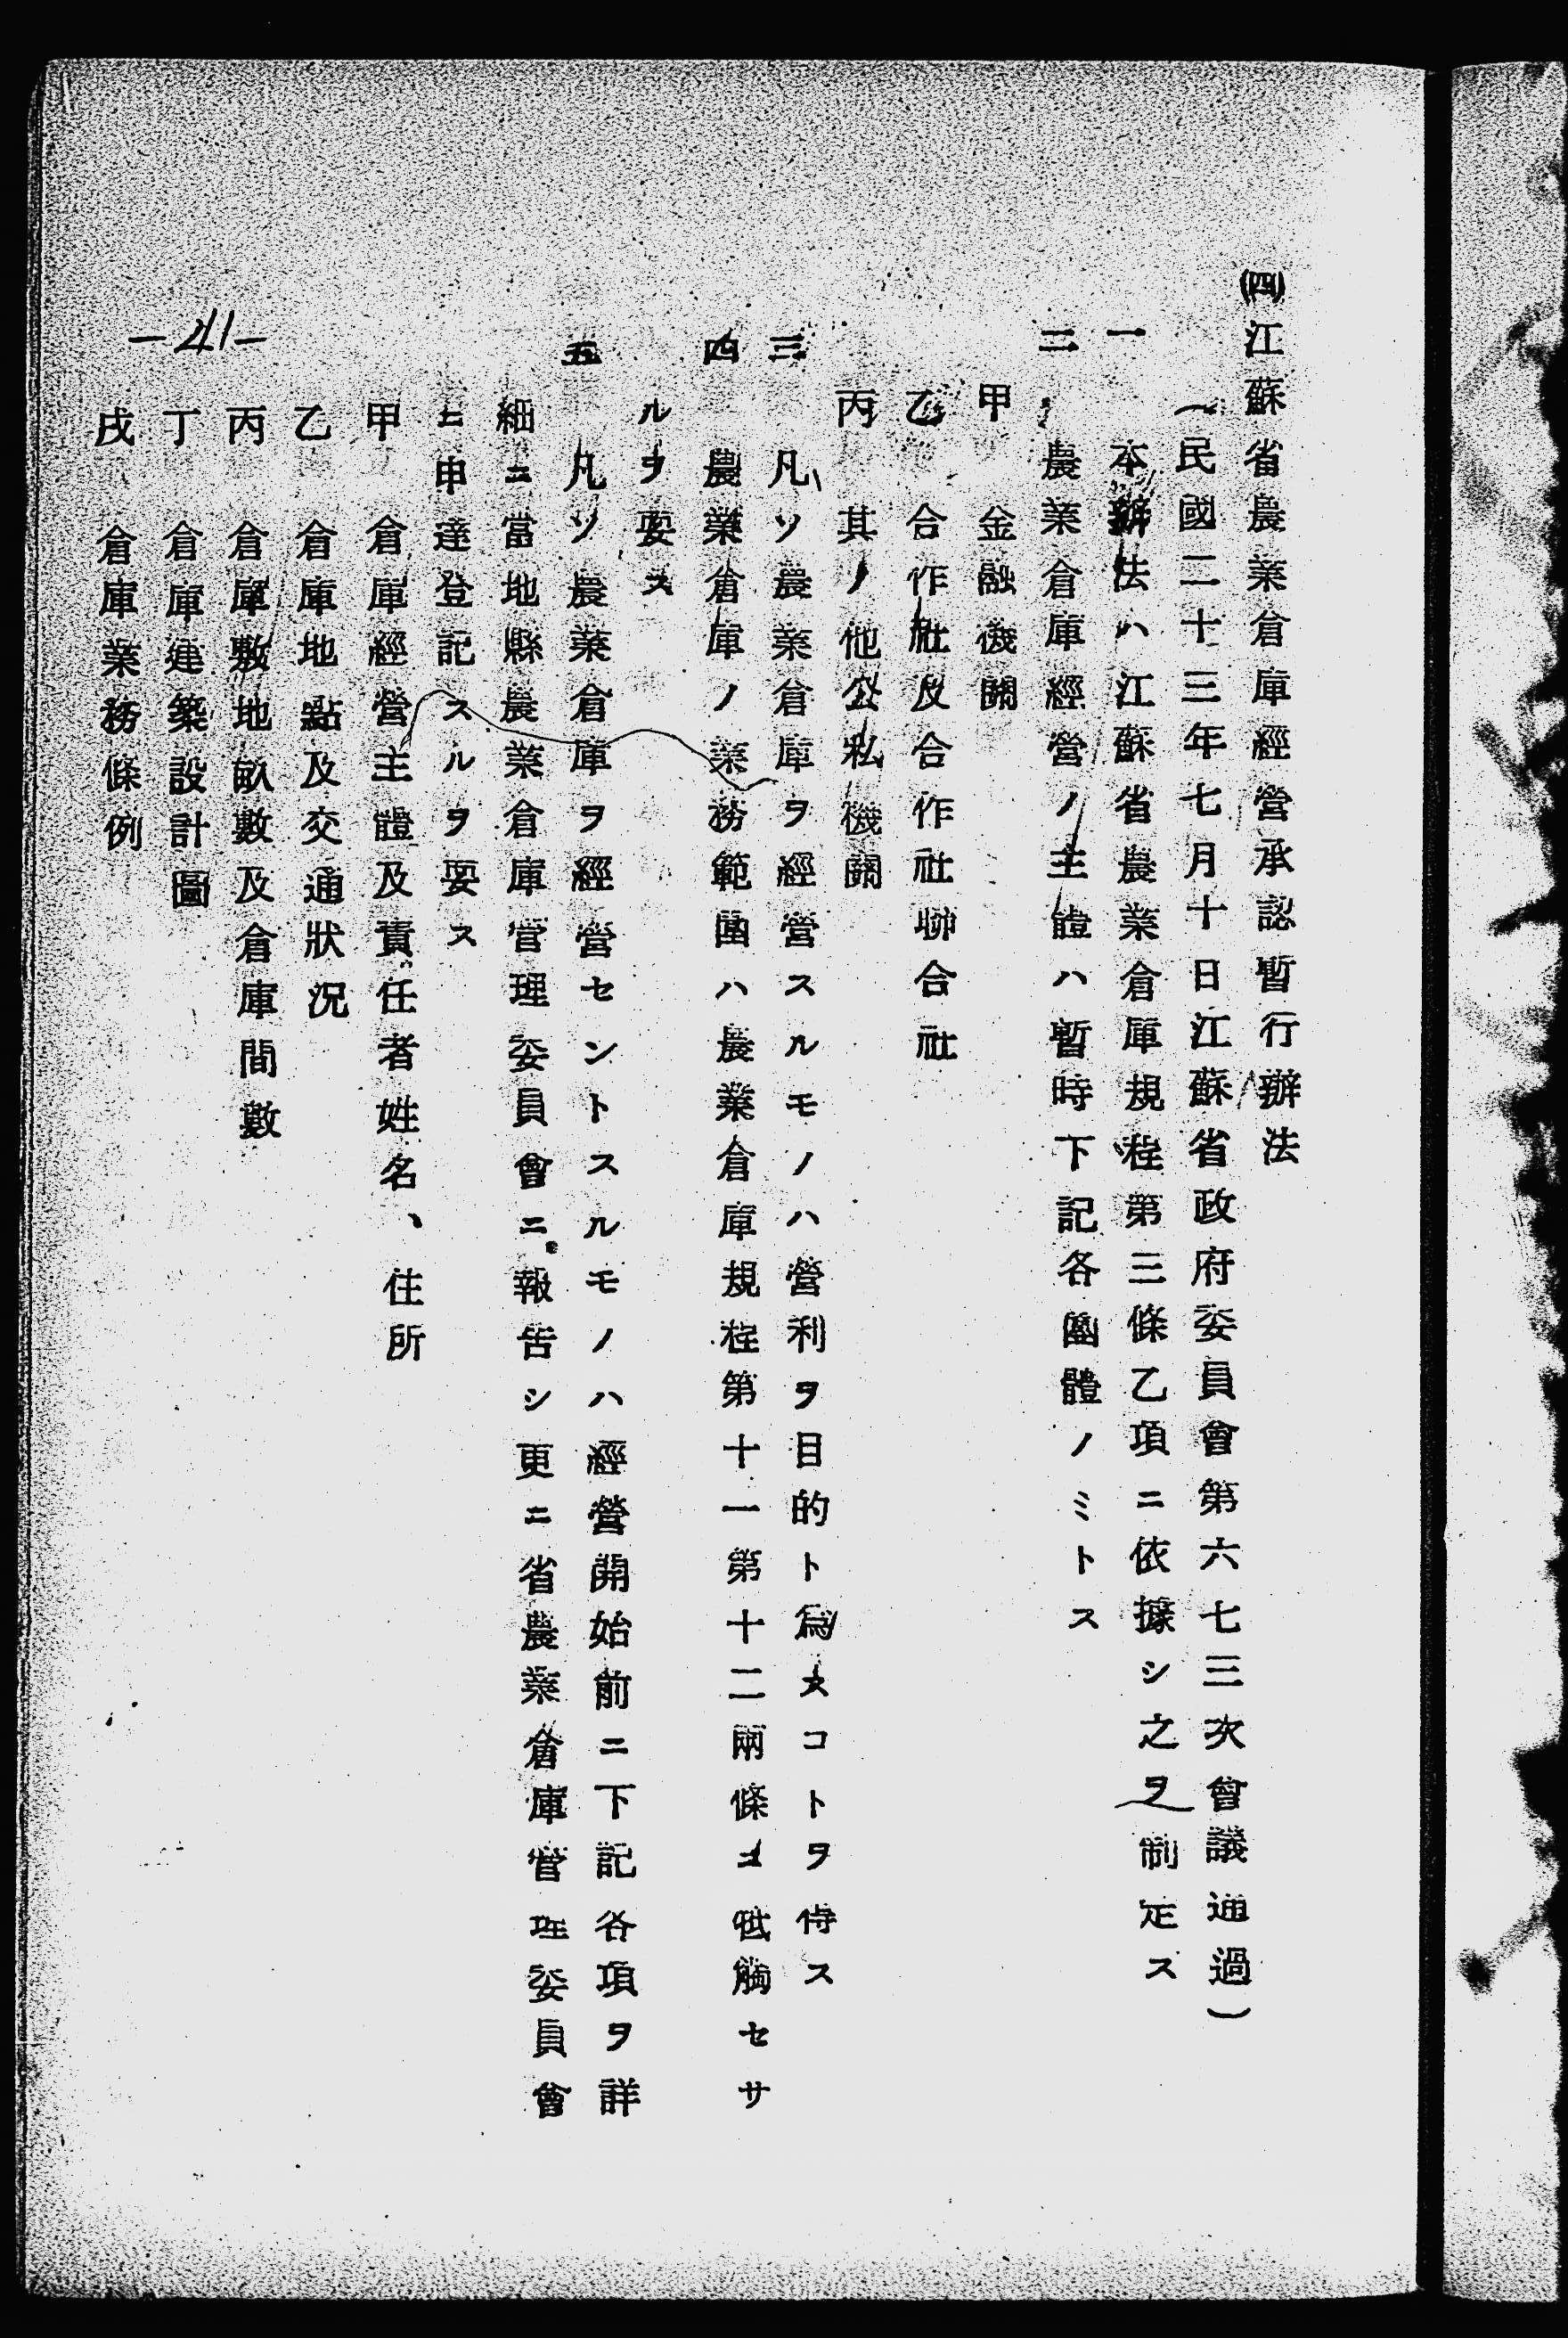 ㈣江蘇省農業倉庫經營承認暫行辦法
（民國二十三年七月十日江蘇省政府委員會第六七三次會議通過）
一　本辦法ハ江蘇省農業倉庫規程第三條乙項ニ依據シ之ヲ制定ス
二　農業倉庫經營ノ主體ハ暫時下記各團體ノミトス
甲　金融機關
乙　合作社及合作社聯合社
丙　其ノ他公私機關
三　凡ソ農業倉庫ヲ經營スルモノハ營利ヲ目的ト爲スコトヲ得ス
四　農業倉庫ノ業務範圍ハ農業倉庫規程第十一第十二兩條ニ牴觸セサ
ルヲ要ス
五　凡ソ農業倉庫ヲ經營セントスルモノハ經營開始前ニ下記各項ヲ詳
細ニ當地縣農業倉庫管理委員會ニ報告シ更ニ省農業倉庫管理委員會
ニ申達登記スルヲ要ス
甲　倉庫經營主體及責任者姓名、住所
乙　倉庫地點及交通狀況
丙　倉庫敷地畝數及倉庫間數
丁　倉庫建築設計圖
戌　倉庫業務條例
—41—